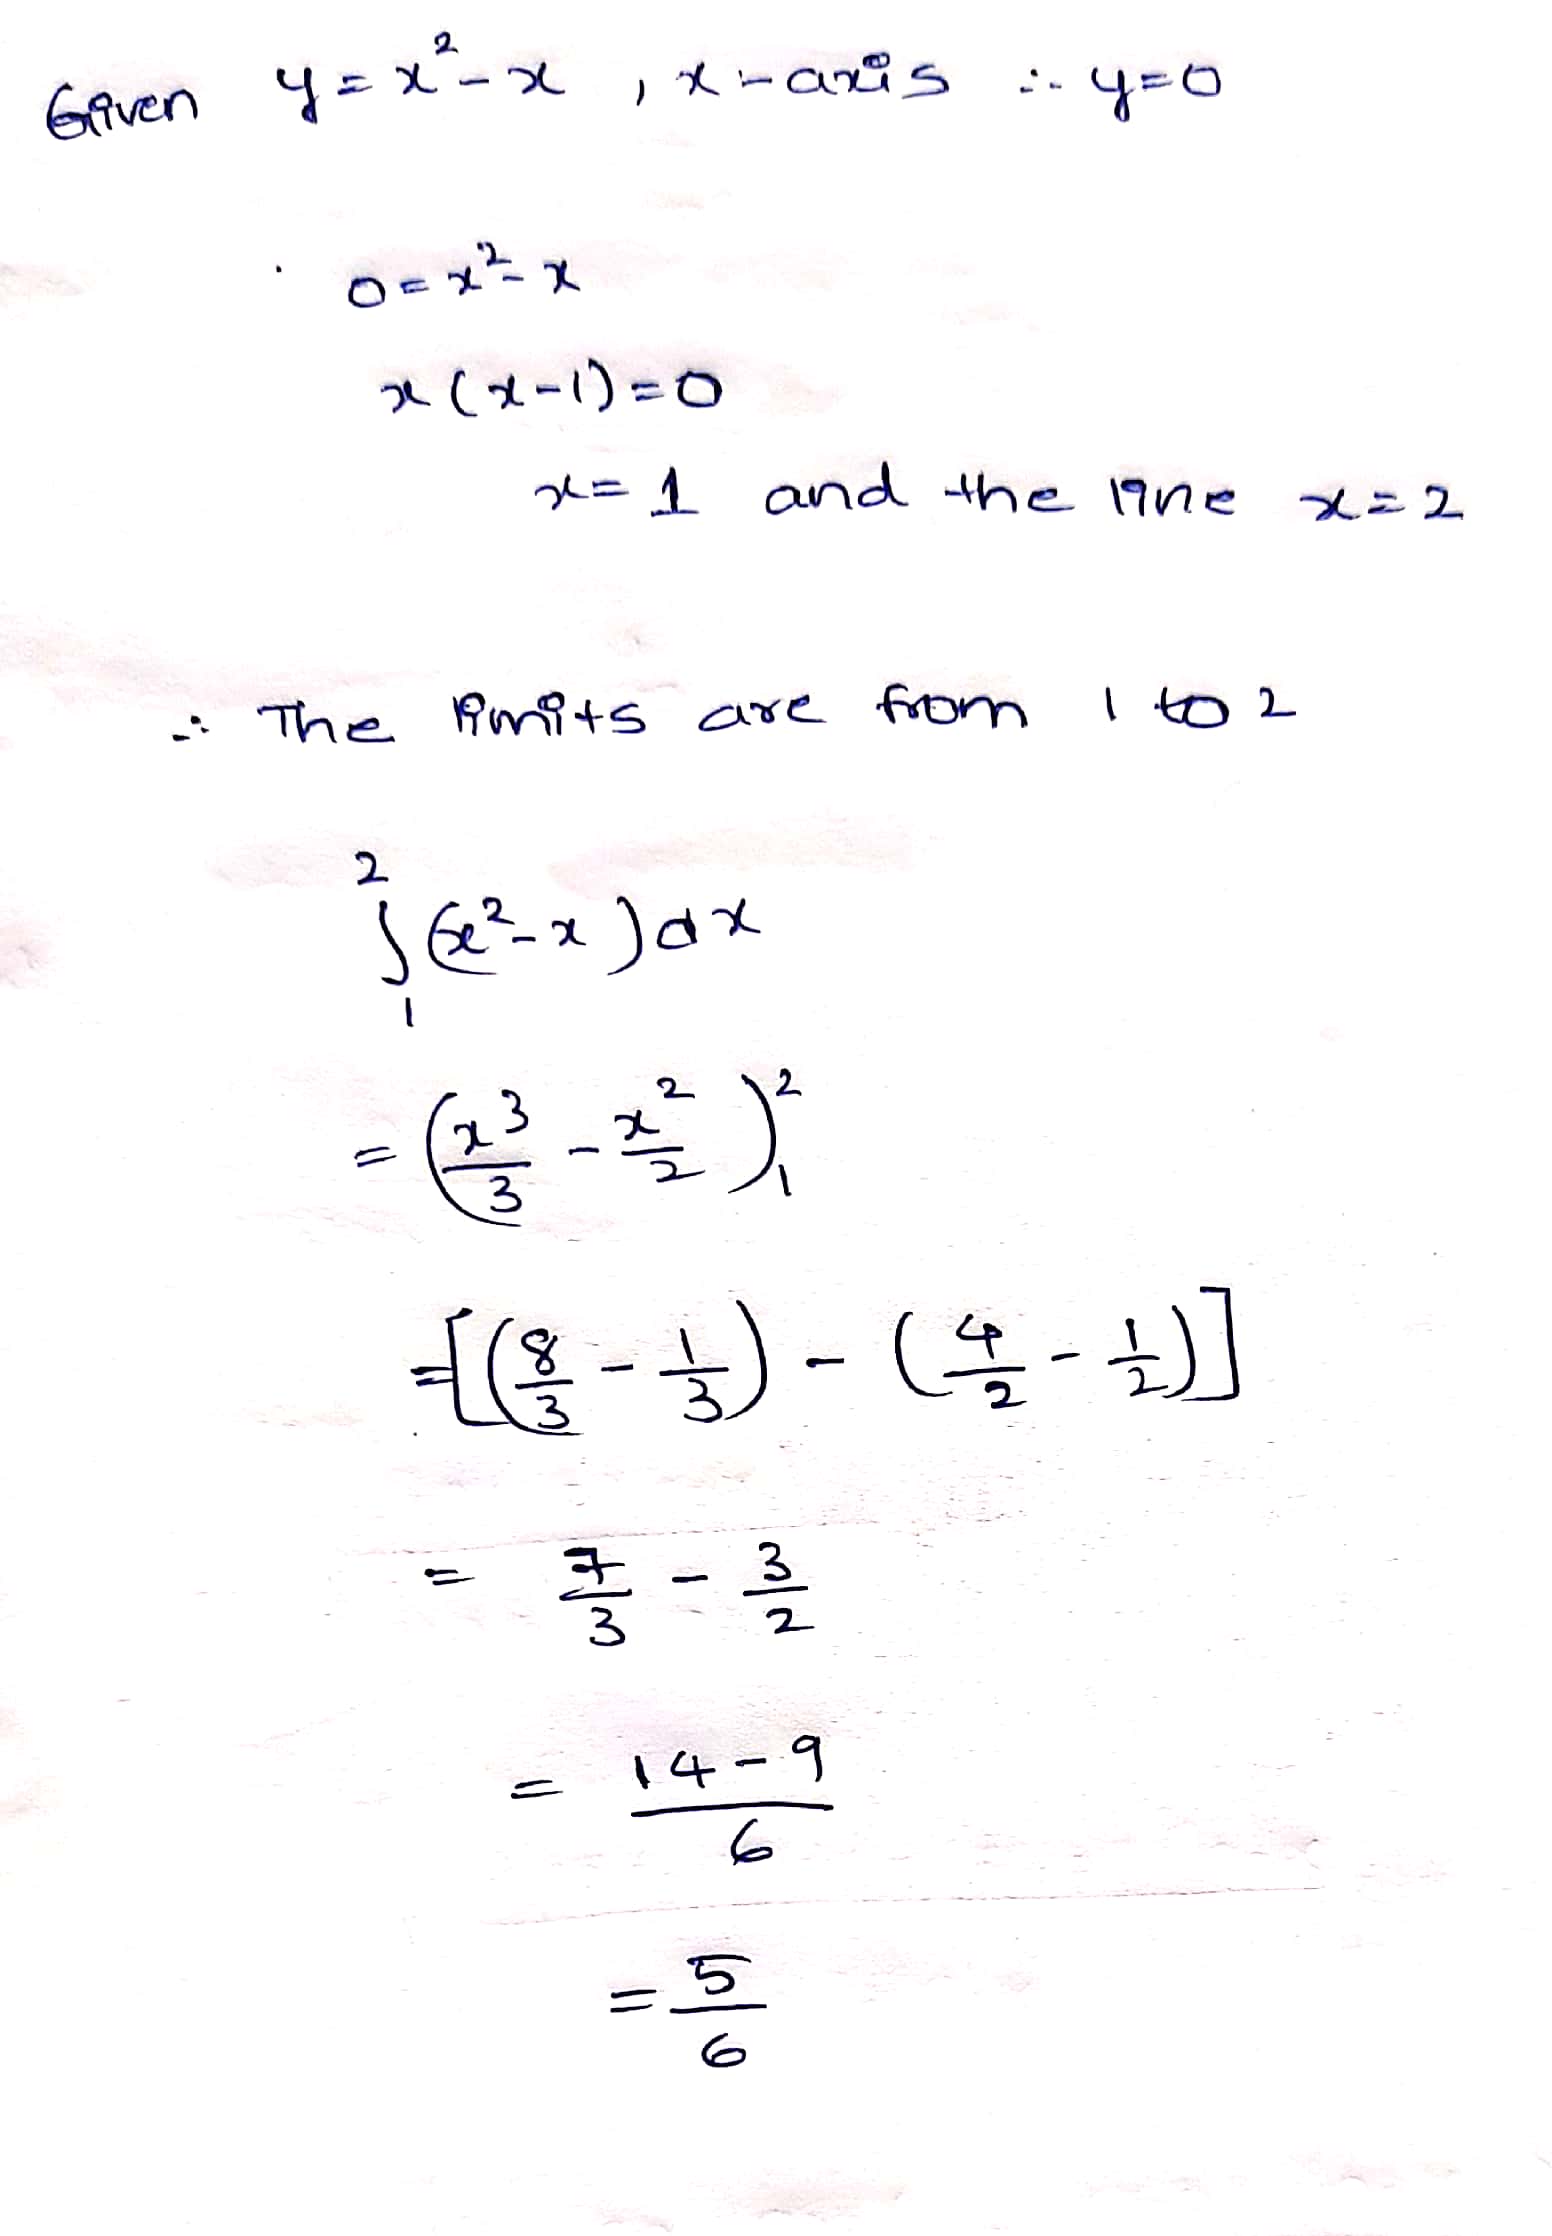 Given y = x² - x , x-axis ∴ y=0
0 = x² - x
x (x-1) = 0
x = 1 and the line x = 2
∴ The limits are from 1 to 2
∫₁² (x² - x) dx
= (x³/3 - x²/2)₁²
= [(8/3 - 1/3) - (4/2 - 1/2)]
= 7/3 - 3/2
= (14-9)/6
= 5/6